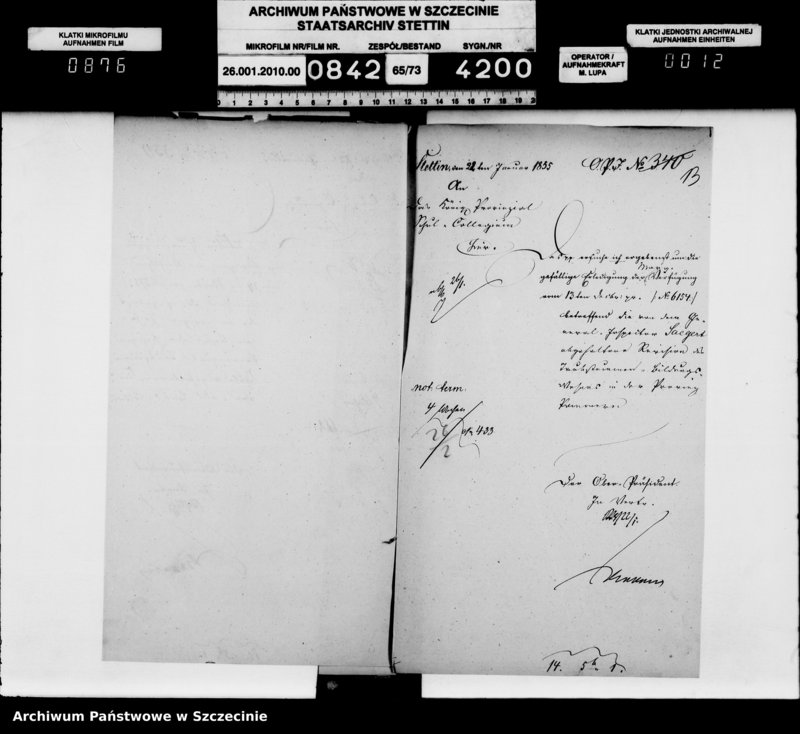 ARCHIWUM PAŃSTWOWE W SZCZECINIE
STAATSARCHIV STETTIN
KLATKI MIKROFILMU
AUFNAHMEN FILM
0876
MIKROFILM NR/FILM NR. ZESPÓŁ/BESTAND SYGN./NR
26.001.2010.00 0842 65/73 4200
0 1 2 3 4 5 6 7 8 9 10 11 12 13 14 15 16 17 18 19 20
OPERATOR /
AUFNAHMEKRAFT
M. LUPA
KLATKI JEDNOSTKI ARCHIWALNEJ
AUFNAHMEN EINHEITEN
0012
Stettin, den 22ten Januar 1855 O.P.J. No 340
13
An
Das Königl. Provinzial
Schul-Collegium
hier.
26/1.
ersuche ich ergebenst um die
gefällige Erledigung der Verfügung
vom 13ten Decbr. pr. /No 6154/
betreffend die von dem Ge-
neral-Inspektor Saegert
abgehaltene Revision des
Taubstummen-Bildungs-
Wesens in der Provinz
Pommern
not. term.
4 Wochen
24/2 433
Der Ober-Präsident.
In Vertr.
22/1.
14. 5
Archiwum Państwowe w Szczecinie